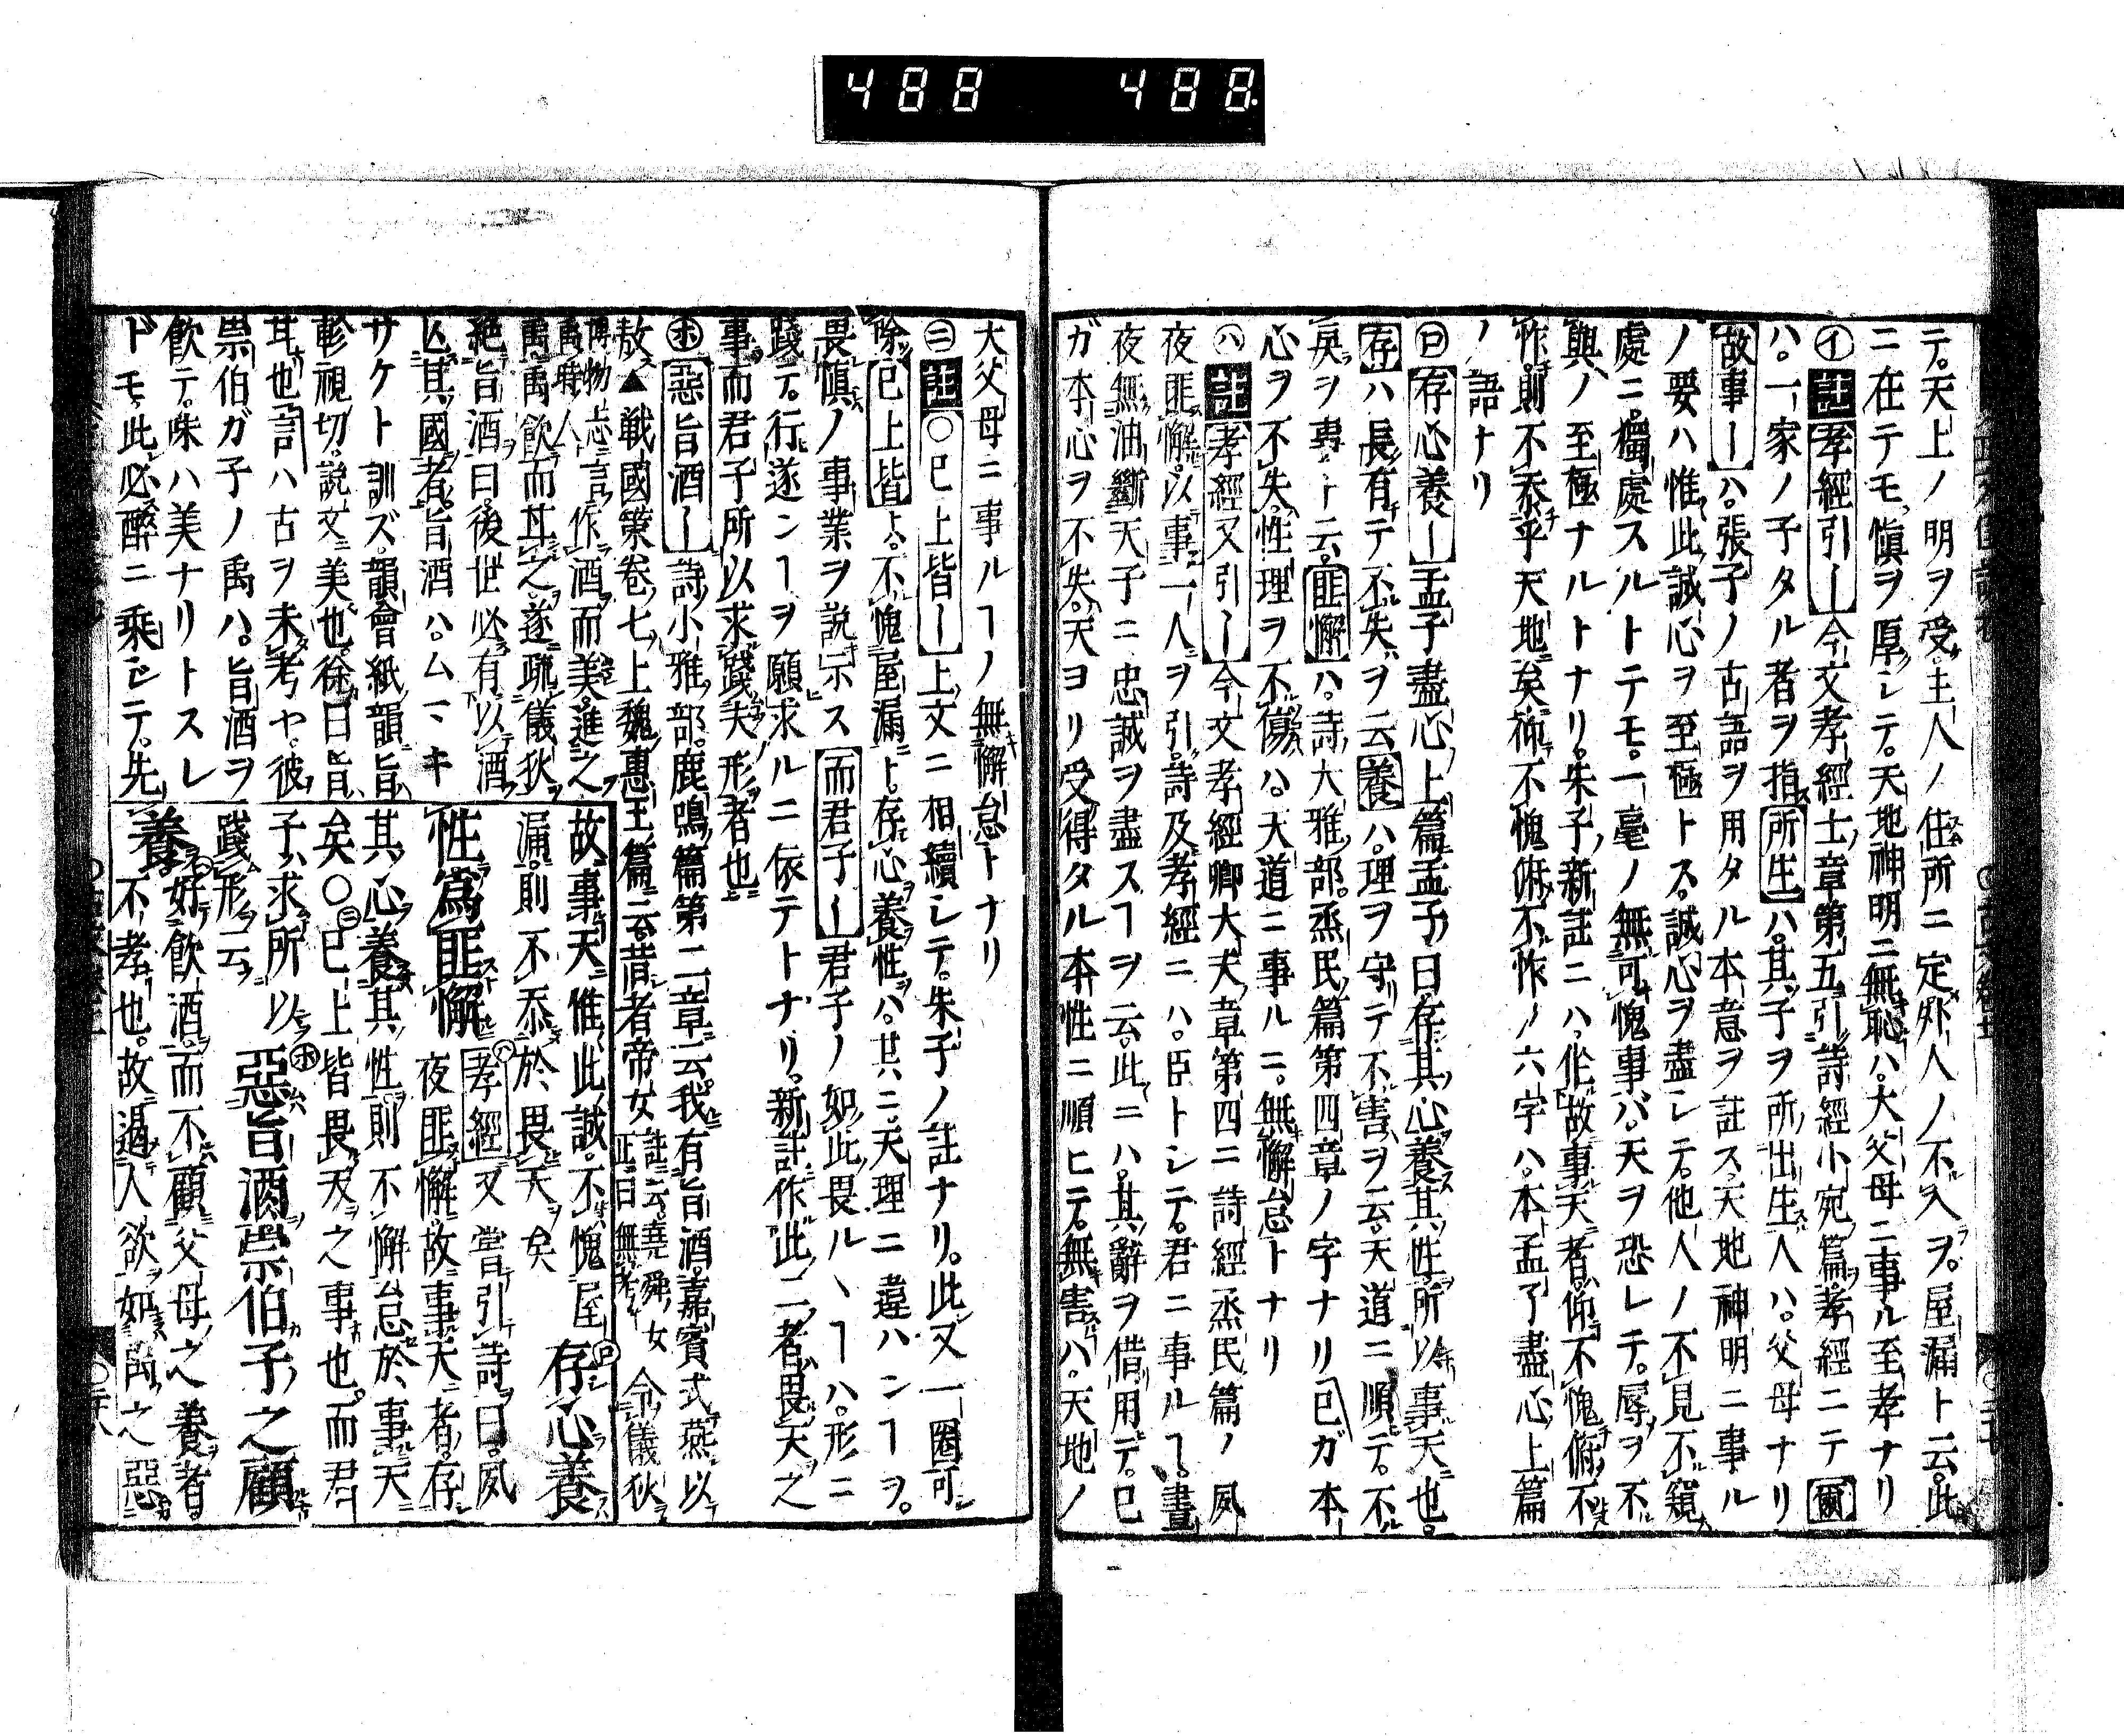 488 488
テ。天上ノ明ヲ受。主人ノ住所ニ定。外人ノ不入ヲ。屋漏ト云。此
ニ在テモ。愼ヲ厚シテ。天地神明ニ無恥ハ。大父母ニ事ル至孝ナリ
㋑註孝經引ー今文孝經士章第五引詩經小宛篇。孝經ニテ爾
ハ。一家ノ子タル者ヲ指所生ハ。其子ヲ所出生人ハ。父母ナリ
故事ーハ。張子ノ古語ヲ用タル本意ヲ註ス。天地神明ニ事ル
ノ要ハ惟此誠心ヲ至極トス。誠心ヲ盡シテ。他人ノ不見不窺
處ニ。獨處スルトテモ。一毫ノ無可愧事バ。天ヲ恐レテ。辱ヲ不
與ノ至極ナルトナリ。朱子新註ニハ。作故事天者。仰不愧俯不
怍。則不忝乎天地矣。仰不愧俯不怍ノ六字ハ。本孟子盡心上篇
ノ語ナリ
㋺存心養ー孟子盡心上篇孟子曰存其心養其性所以事天也。
存ハ長有テ不失ヲ云養ハ。理ヲ守テ不害ヲ云。天道ニ順テ。不
戻ヲ事ト云。匪懈ハ。詩大雅部。烝民篇第四章ノ字ナリ已ガ本
心ヲ不失。性理ヲ不傷ハ。大道ニ事ルニ。無懈怠トナリ
㋩註孝經又引ー今文孝經卿大夫章第四ニ詩經烝民篇ノ夙
夜匪懈。以事一人ヲ引。詩及孝經ニハ。臣トシテ。君ニ事ルヿ。晝
夜無油斷天子ニ忠誠ヲ盡スヿヲ云。此ニハ。其辭ヲ借用テ。已
ガ本心ヲ不失。天ヨリ受得タル本性ニ順ヒテ。無害ハ。天地ノ
大父母ニ事ルヿノ無懈怠トナリ
㊁註○已上皆ー上文ニ相續シテ。朱子ノ註ナリ。此又一圈可
除已上皆ト。不愧屋漏ト。存心養性ハ。共ニ。天理ニ違ハンヿヲ。
畏愼ノ事業ヲ説示ス而君子ー君子ノ如此畏ルヽヿハ。形ニ
踐テ。行遂ンヿヲ願求ルニ依テトナリ。新註作此二者畏天之
事而君子所以求踐夫形者也
㋭惡旨酒ー詩小雅部。鹿鳴篇第二章云。我有旨酒。嘉賓式燕以
敖▲戰國策卷七上魏惠王篇云。昔者帝女註云堯舜女正曰無考令儀狄
博物志言作酒而美。進之
禹時人
禹。禹飲而甘之。遂疏儀狄
絶旨酒曰。後世必有以酒
亡其國者。旨酒ハ。ムマキ
サケト訓ズ。韻會紙韻旨
軫視切。説文美也。徐曰旨
甘也言ハ古ヲ未考ヤ。彼
崇伯ガ子ノ禹ハ。旨酒ヲ
飲テ。味ハ美ナリトスレ
ドモ。此必醉ニ乘シテ。先
故事天。惟此誠。不愧屋
漏。則不忝於畏天矣
㋺存心養
性爲匪懈㋩孝經又嘗引詩曰。夙
夜匪懈。故事天者。存
其心養其性則不懈怠於事天
矣○㊁已上皆畏天之事也。而君
子求所以
踐形云
㋭惡旨酒崇伯子之顧
養好飲酒而不顧父母之養者。
不孝也。故遏人欲如禹之惡